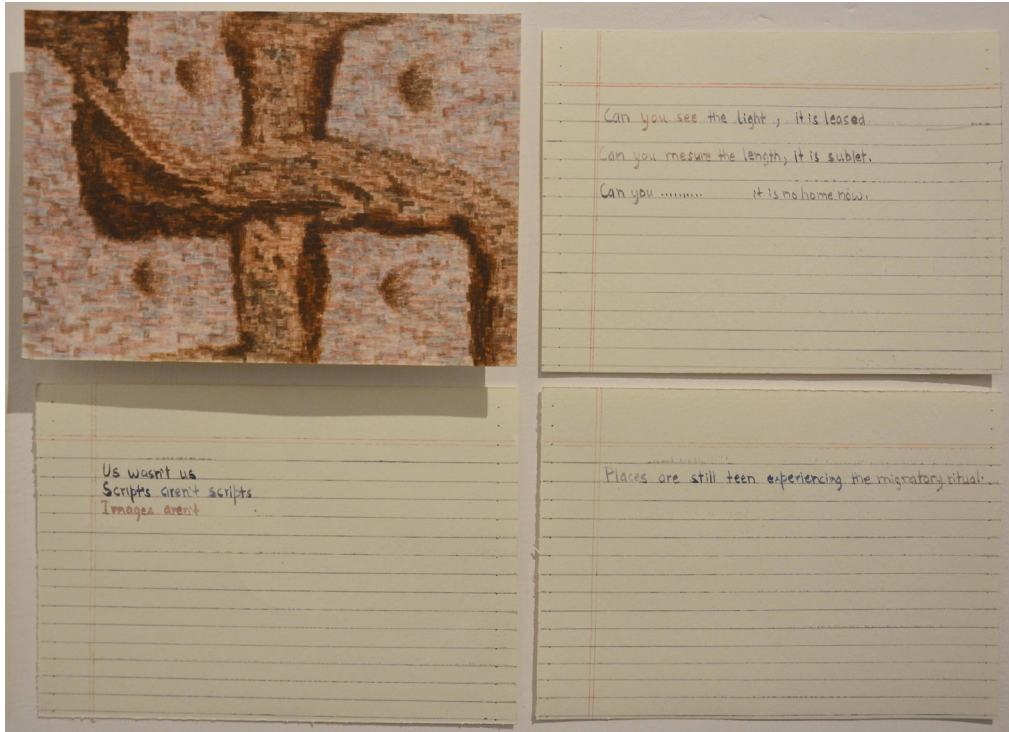 Can you see the light, it is leased.
Can you mesure the length, it is sublet.
Can you .......... it is no home now.
Us wasn't us
Scripts aren't scripts
Images aren't
Places are still teen experiencing the migratory ritual.